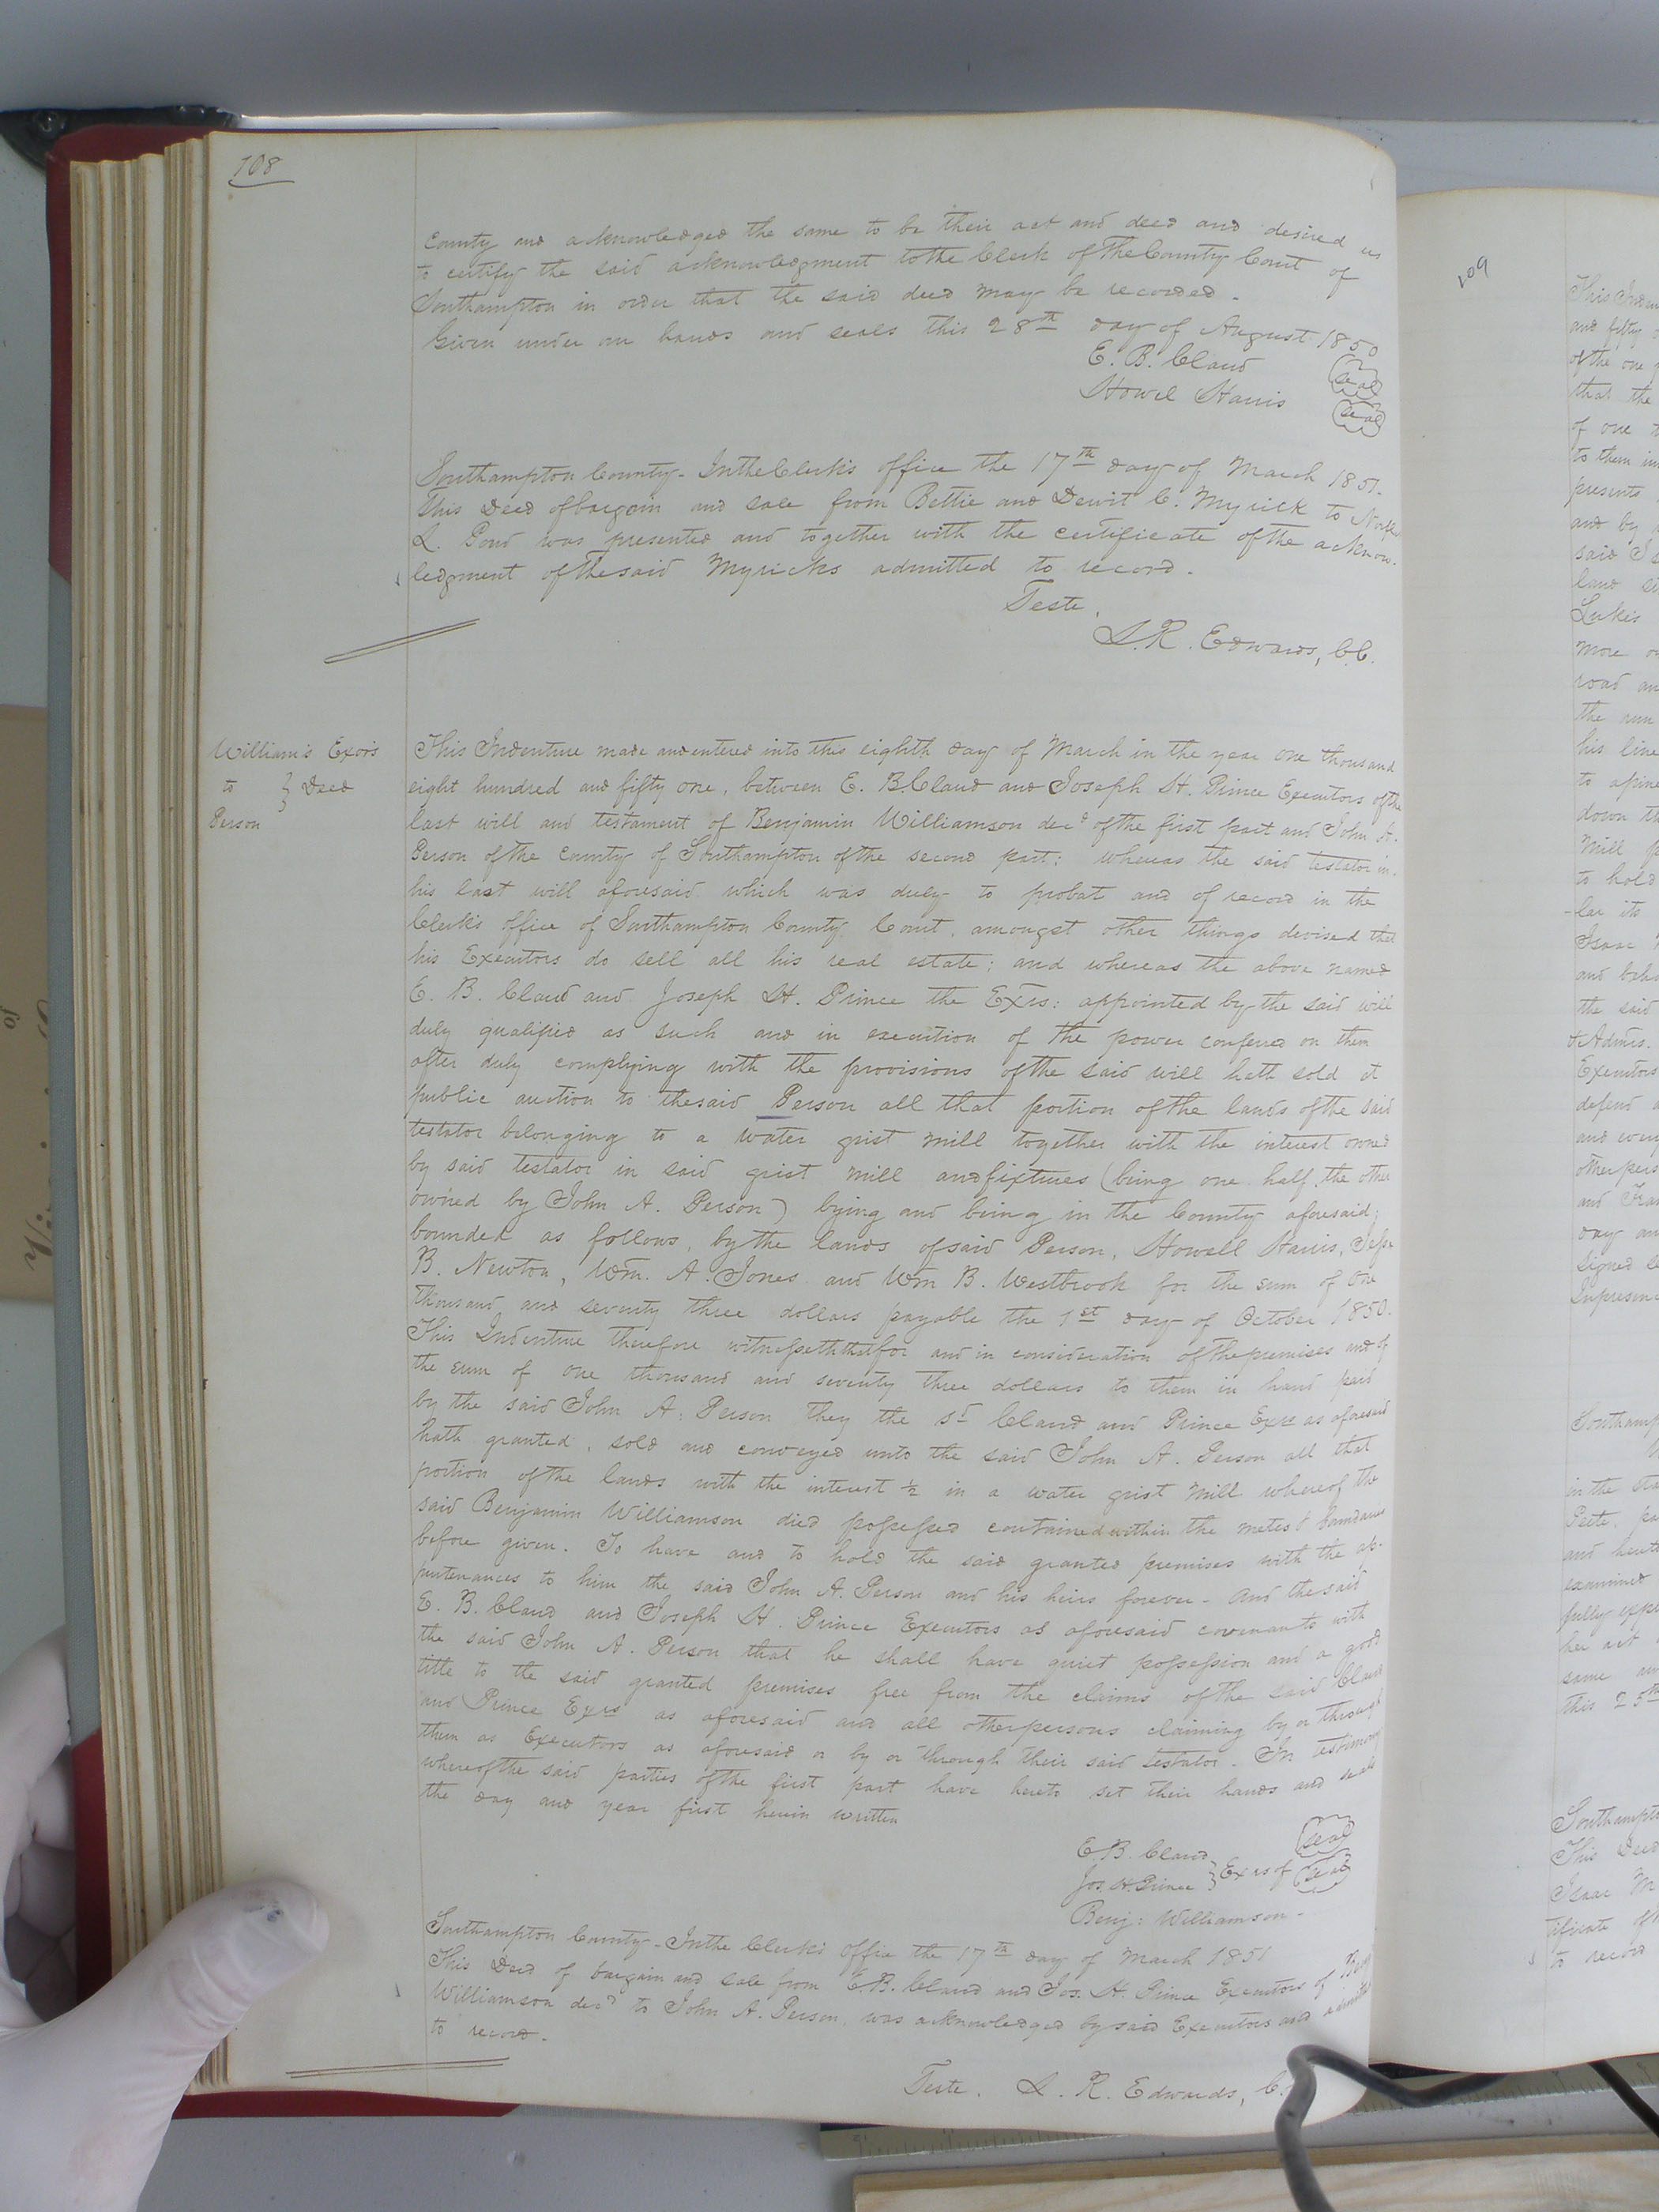 108
County and acknowledged the same to be their act and deed and desired us
to certify the said acknowledgment to the Clerk of the County Court of
Southampton in order that the said deed may be recorded.
Given under our hands and seals this 28th day of August 1850
E. B. Claud seal
Howel Harris seal
Southampton County - In the Clerk's office the 17th day of March 1851.
This Deed of bargain and sale from Bettie and Dewit C. Myrick to
L. Pond was presented and together with the certificate of the acknow-
ledgment of the said Myricks admitted to record.
Teste,
L. R. Edwards, C.C.
William's Exors
to } Deed
Person
This Indenture made and entered into this eighth day of March in the year one thousand
eight hundred and fifty one, between E. B. Claud and Joseph H. Prince Executors of the
last will and testament of Benjamin Williamson decd of the first part and John A.
Person of the County of Southampton of the second part: whereas the said testator in
his last will aforesaid which was duly to probat and of record in the
Clerk's office of Southampton County Court, amongst other things devised that
his Executors do sell all his real estate; and whereas the above named
E. B. Claud and Joseph H. Prince the Exrs: appointed by the said will
duly qualified as such and in execution of the power conferred on them
after duly complying with the provisions of the said will hath sold at
public auction to the said Person all that portion of the lands of the said
testator belonging to a water grist mill together with the interest owned
by said testator in said grist mill and fixtures (being one half, the other
owned by John A. Person) lying and being in the County aforesaid;
bounded as follows, by the lands of said Person, Howell Harris, Jesse
B. Newton, Wm. A. Jones and Wm B. Westbrook for the sum of one
thousand and seventy three dollars payable the 1st day of October 1850.
This Indenture therefore witnesseth that for and in consideration of the premises and of
the sum of one thousand and seventy three dollars to them in hand paid
by the said John A. Person they the sd Claud and Prince Exrs as aforesaid
hath granted, sold and conveyed unto the said John A. Person all that
portion of the lands with the interest ½ in a water grist mill whereof the
said Benjamin Williamson died possessed contained within the metes & boundaries
before given. To have and to hold the said granted premises with the ap-
purtenances to him the said John A. Person and his heirs forever - And the said
E. B. Claud and Joseph H. Prince Executors as aforesaid covenants with
the said John A. Person that he shall have quiet possession and a good
title to the said granted premises free from the claims of the said Claud
and Prince Exrs as aforesaid and all other persons claiming by or through
them as Executors as aforesaid or by or through their said testator. In testimony
whereof the said parties of the first part have hereto set their hands and seals
the day and year first herein written
E. B. Claud } Exrs of seal
Jos. H. Prince seal
Benj: Williamson -
Southampton County - In the Clerk's office the 17th day of March 1851
This Deed of bargain and sale from E. B. Claud and Jos. H. Prince Executors of Benj
Williamson decd to John A. Person, was acknowledged by said Executors and admitted
to record.
Teste. L. R. Edwards, C.
109
This Inden
and fifty
of the one
that the
of one
to them in
presents
and by
said
land
Lukes
more or
road an
the run
his line
to a pine
down th
Mill p
to hold
-lar its
Isaac
and beho
the said
& Admrs.
Executors
defend
and every
other pers
and
day an
Signed se
In presence
Southamp
in the
Peete
and hereto
examined
fully expl
her act
same
this 25th
Southampto
This Deed
Isaac M
tificate of
to record